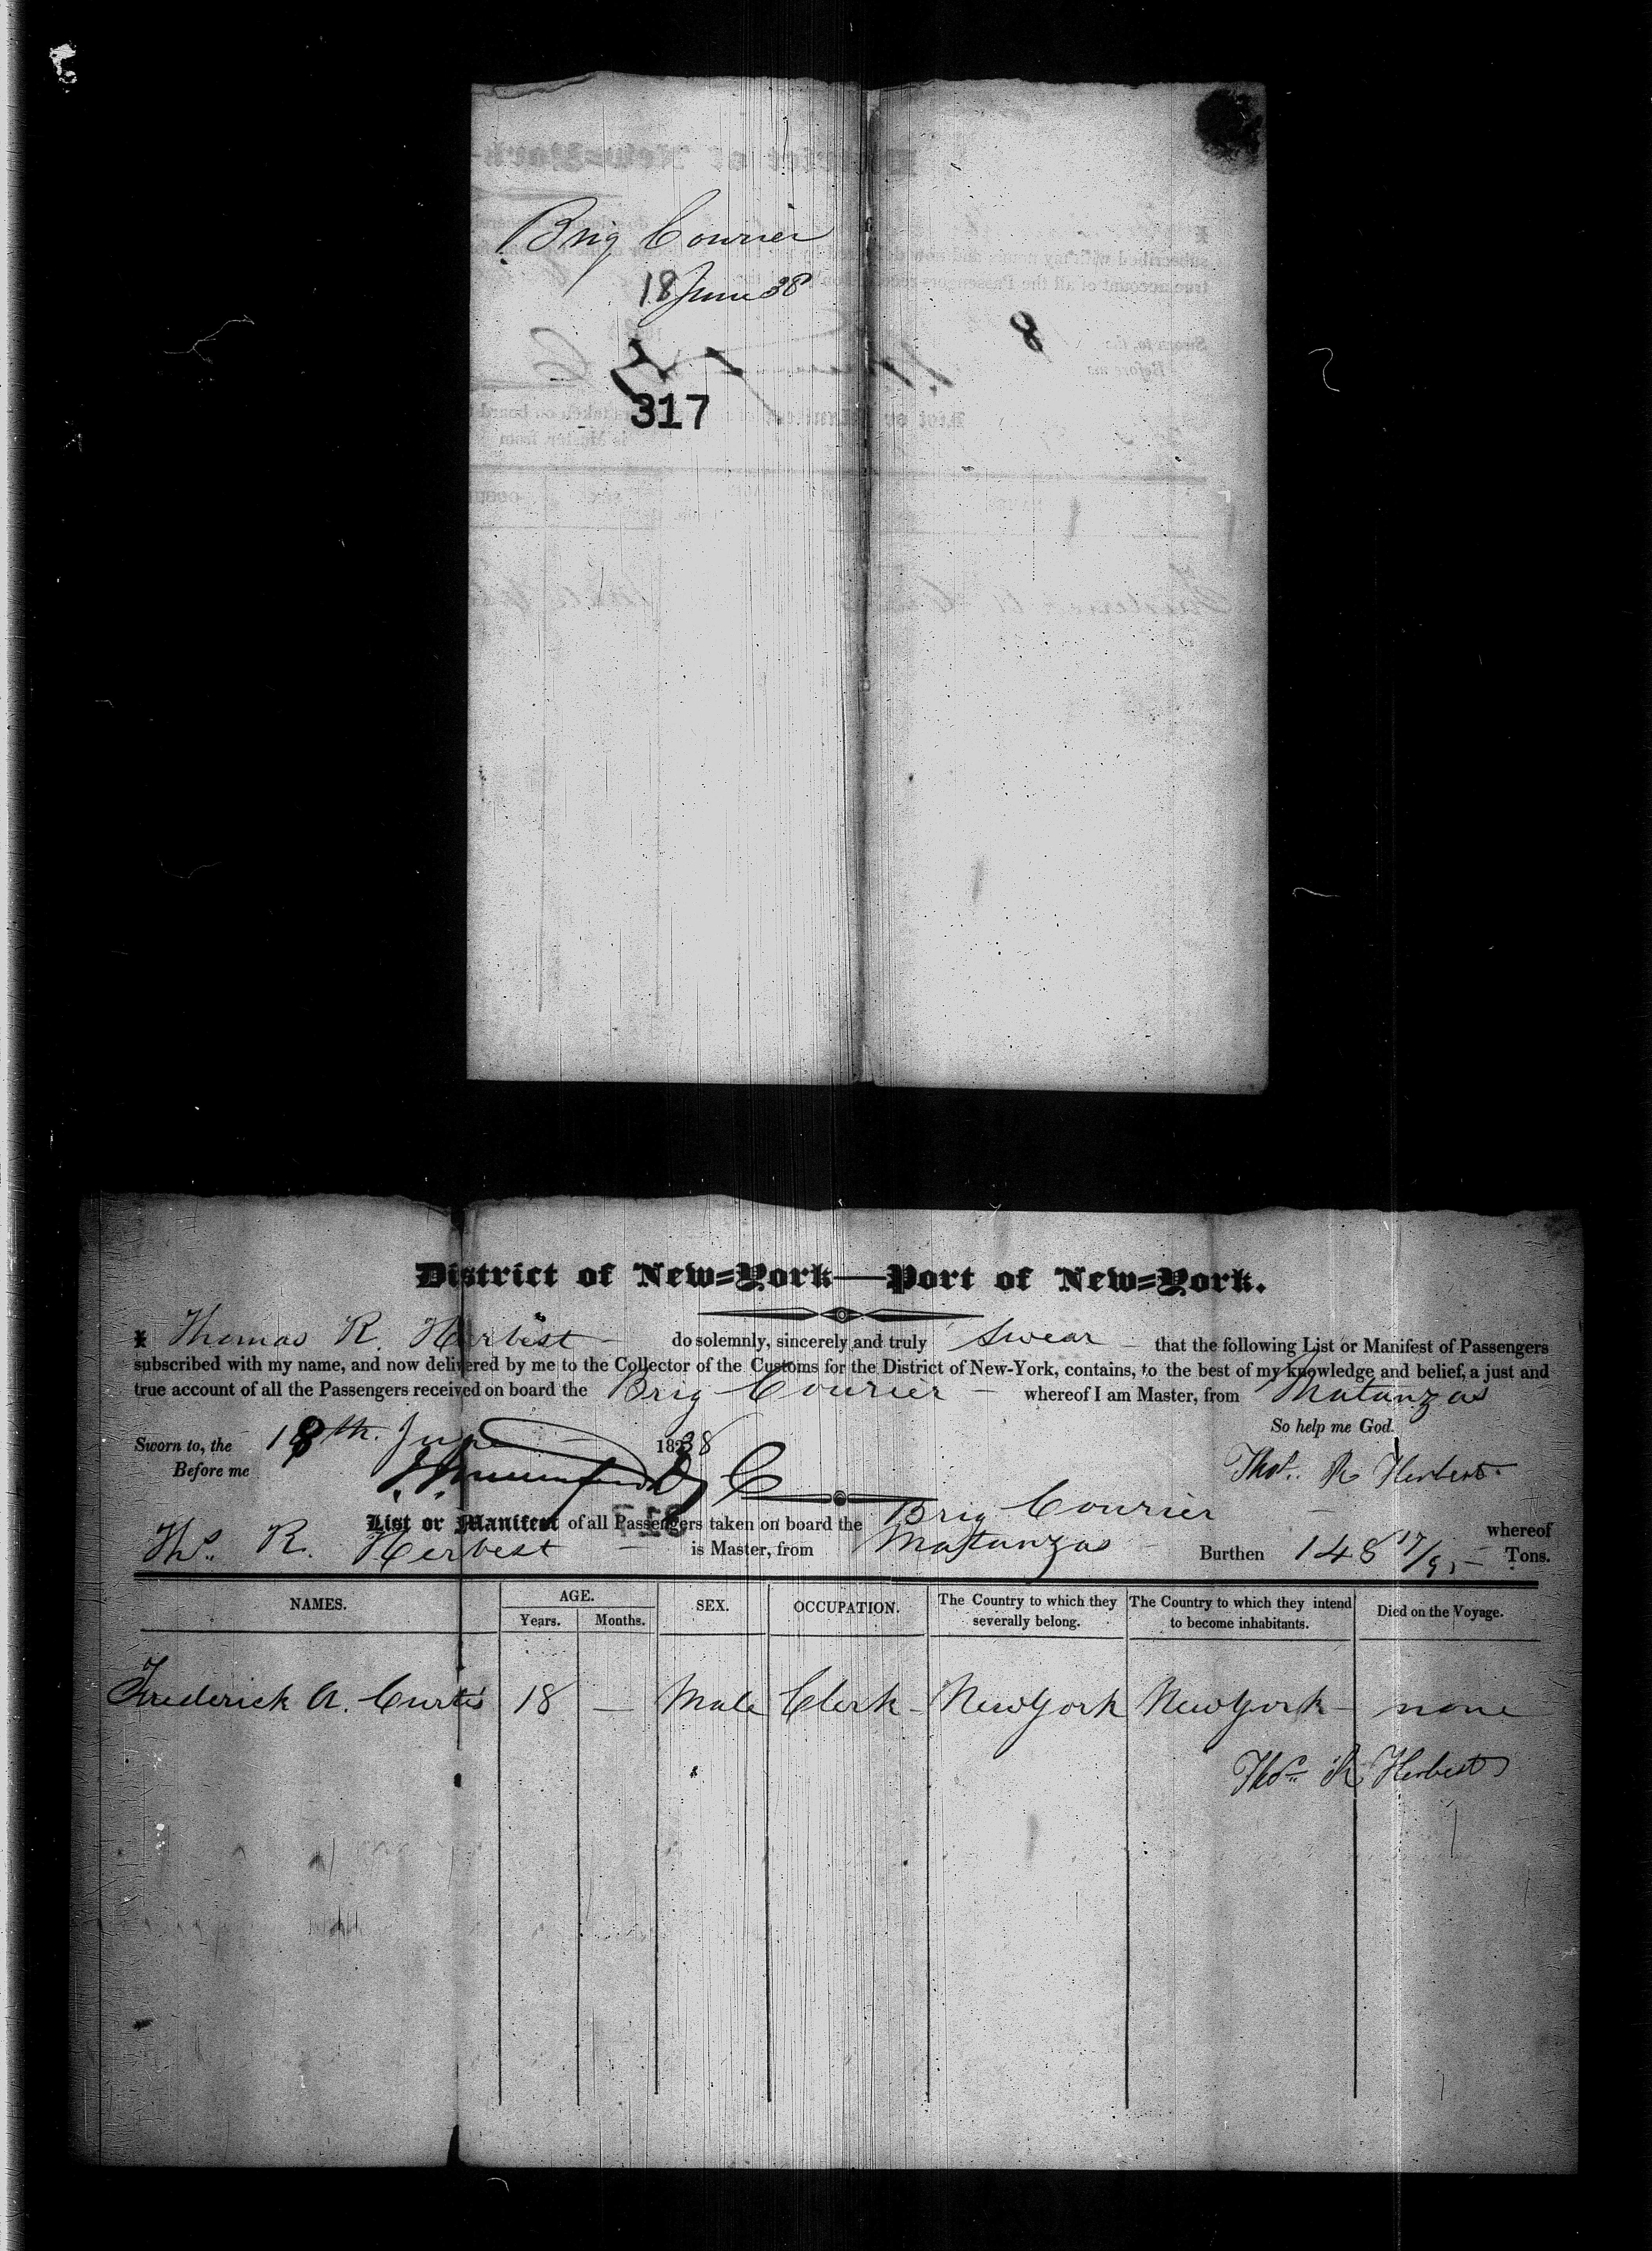 Brig Courier
18 June 38
317
District of New=York—Port of New=York.
I Thomas R. Herbest do solemnly, sincerely and truly swear that the following List or Manifest of Passengers
subscribed with my name, and now delivered by me to the Collector of the Customs for the District of New-York, contains, to the best of my knowledge and belief, a just and
true account of all the Passengers received on board the Brig Courier whereof I am Master, from Matanzas
So help me God.
Sworn to, the 18th. June 1838
Before me
Thos. R Herbest
List or Manifest of all Passengers taken on board the Brig Courier whereof
Ths. R. Herbest is Master, from Matanzas Burthen 148 17/95 Tons.
NAMES. AGE. SEX. OCCUPATION. The Country to which they severally belong. The Country to which they intend to become inhabitants. Died on the Voyage.
Years. Months.
Frederick A. Curtis 18 — Male Clerk - New York New York - none
Thos. R Herbest